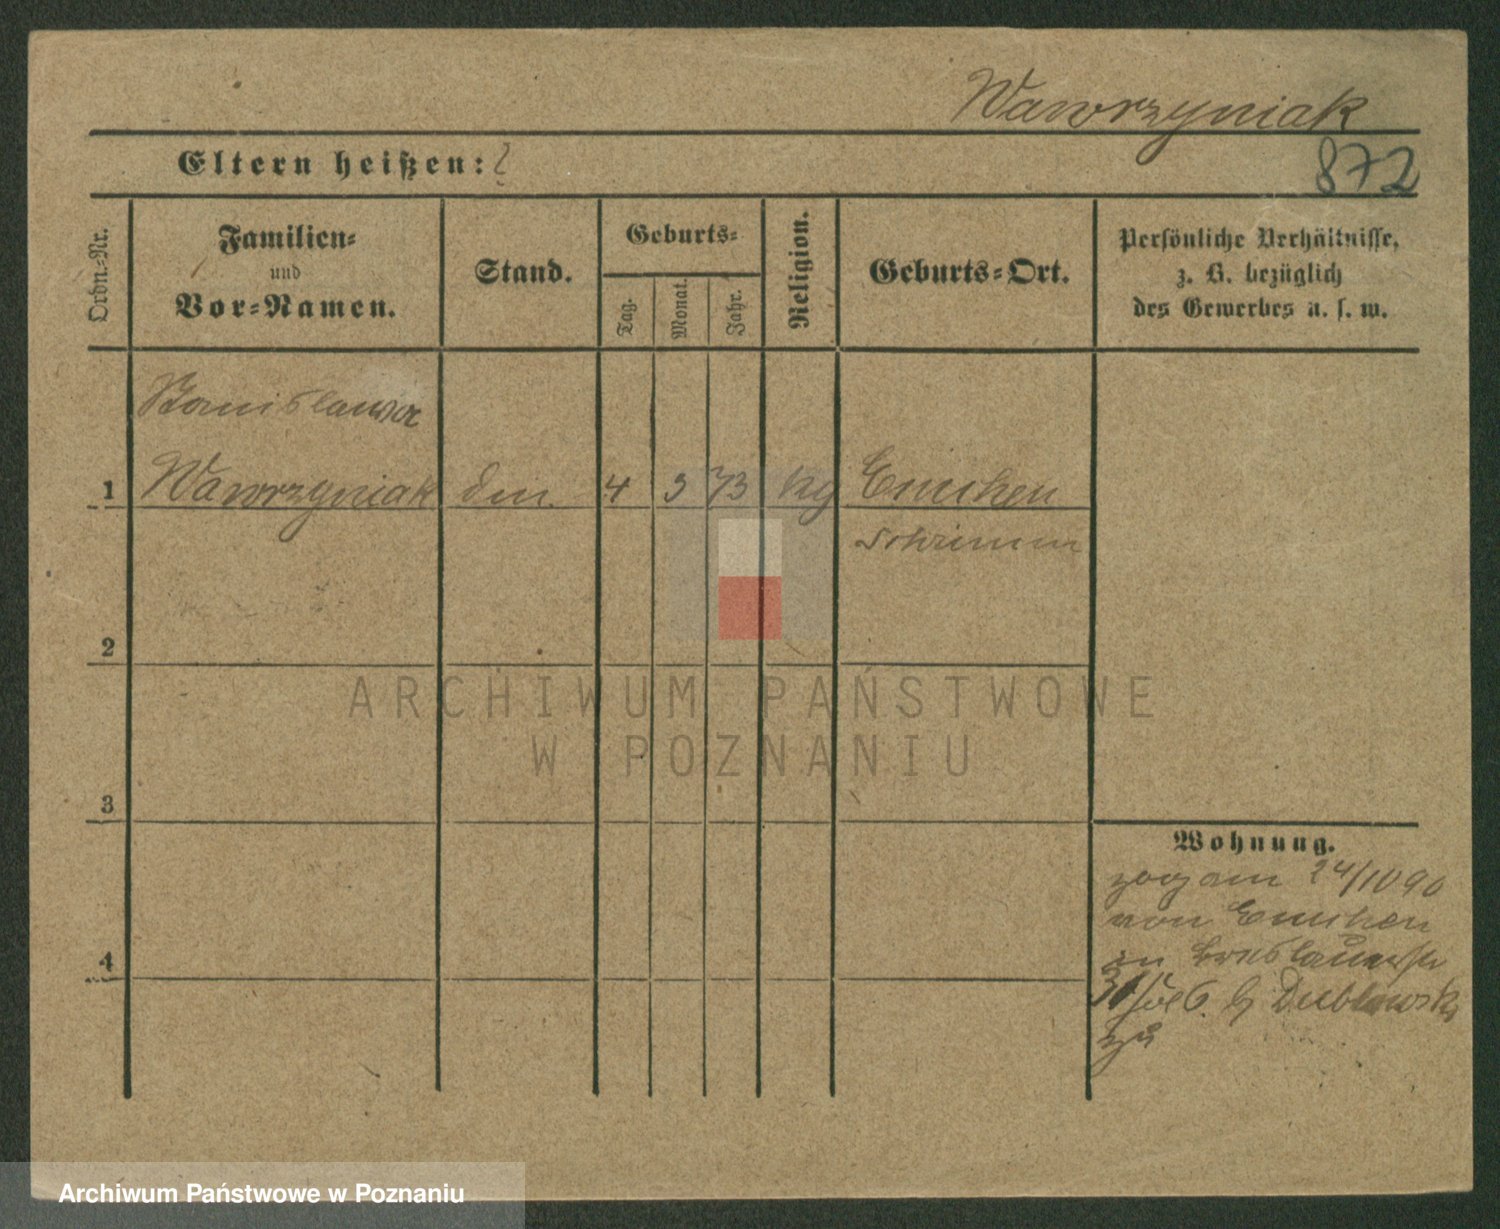 Wawrzyniak
Eltern heißen:
872
Ordn.-Nr.
Familien-
und
Vor-Namen.
Stand.
Geburts-
Tag.
Monat.
Jahr.
Religion.
Geburts-Ort.
Persönliche Verhältnisse,
z. B. bezüglich
des Gewerbes u. s. w.
Stanislawa
1 Wawrzyniak 4 73 kg
Schrimm
2
ARCHIWUM PAŃSTWOWE
W POZNANIU
3
Wohnung.
zog am 24/10 90
von
4
zu
Archiwum Państwowe w Poznaniu